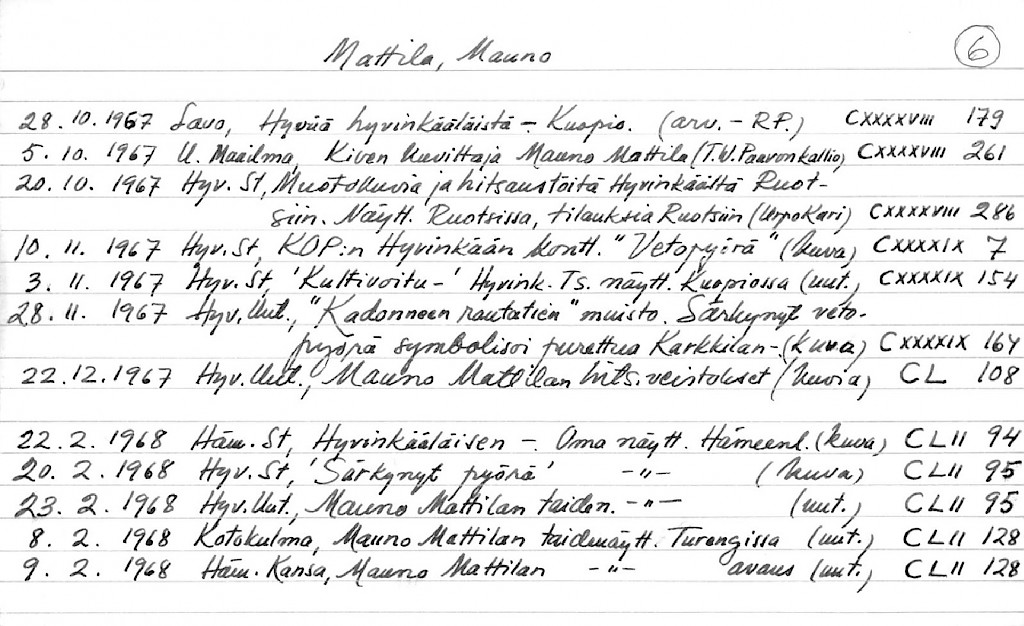 Mattila, Mauno 6
28.10.1967 Savo, Hyvää hyvinkääläistä - Kuopio. (arv. - R.P.) CXXXXVIII 179
5.10.1967 U. Maailma, Kiven kuvittaja Mauno Mattila (T.W. Paavonkallio) CXXXXVIII 261
20.10.1967 Hyv. St, Muotokuvia ja hitsaustöitä Hyvinkäältä Ruot-
siin. Näytt. Ruotsissa, tilauksia Ruotsiin (Urpo Kari) CXXXXVIII 286
10.11.1967 Hyv. St, KOP:n Hyvinkään kontt. "Vetopyörä" (kuva) CXXXXIX 7
3.11.1967 Hyv. St, 'Kultivoitu-' Hyvink. Ts. näytt. Kuopiossa (uut.) CXXXXIX 154
28.11.1967 Hyv. Uut., "Kadonneen rautatien" muisto. Särkynyt veto-
pyörä symbolisoi purettua Karkkilan- (kuva) CXXXXIX 164
22.12.1967 Hyv. Uut., Mauno Mattilan hits. veistokset (kuvia) CL 108
22.2.1968 Häm. St, Hyvinkääläisen - Oma näytt. Hämeenl. (kuva) CLII 94
20.2.1968 Hyv. St, 'Särkynyt pyörä' -"- (kuva) CLII 95
23.2.1968 Hyv. Uut., Mauno Mattilan taiden. -"- (uut.) CLII 95
8.2.1968 Kotokulma, Mauno Mattilan taidenäytt. Turengissa (uut.) CLII 128
9.2.1968 Häm. Kansa, Mauno Mattilan -"- avaus (uut.) CLII 128